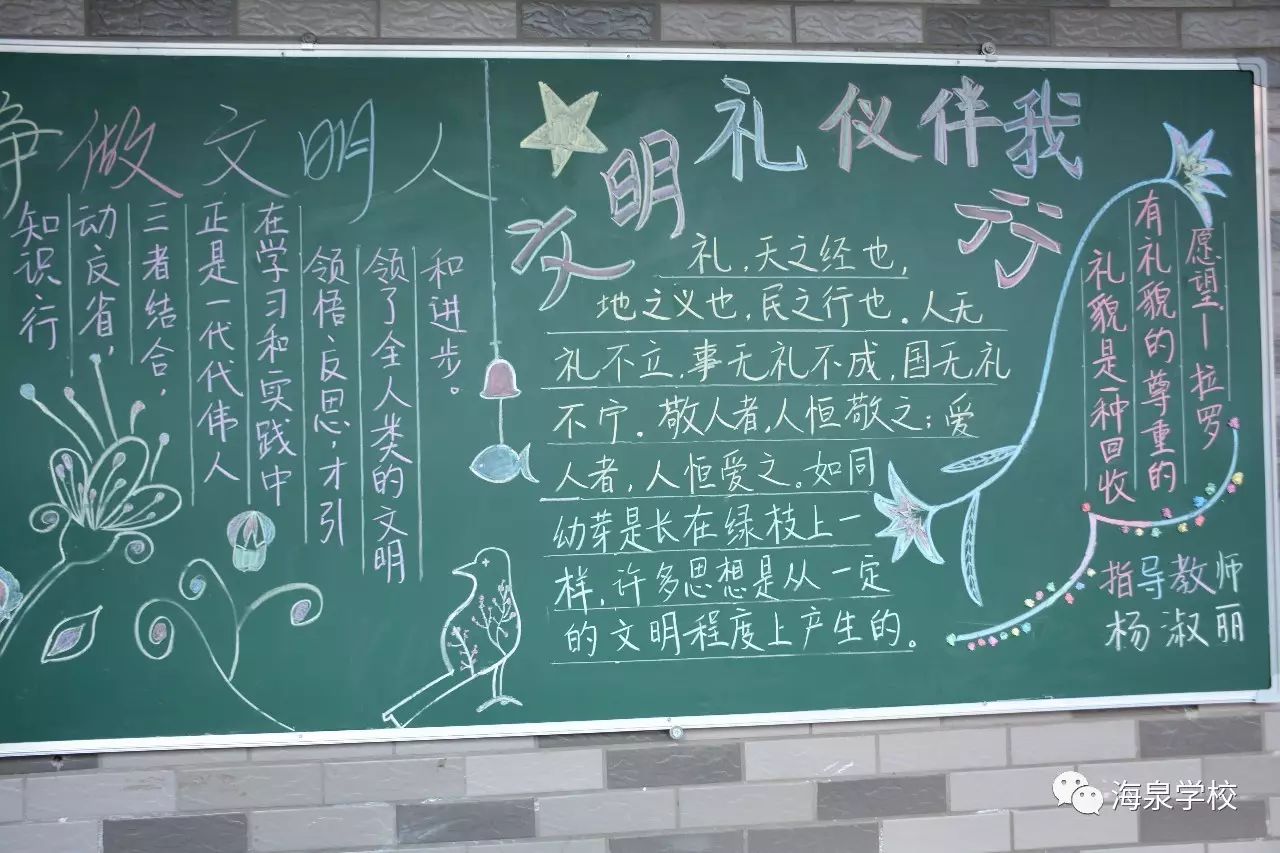 争做文明人
知识行
动反省，
三者结合，
正是一代代伟人
在学习和实践中
领悟反思，才引
领了全人类的文明
和进步。
文明礼仪伴我行
礼，天之经也，
地之义也，民之行也。人无
礼不立，事无礼不成，国无礼
不宁。敬人者，人恒敬之；爱
人者，人恒爱之。如同
幼芽是长在绿枝上一
样，许多思想是从一定
的文明程度上产生的。
礼貌是一种回收
有礼貌的尊重的
愿望—拉罗
指导教师
杨淑丽
海泉学校